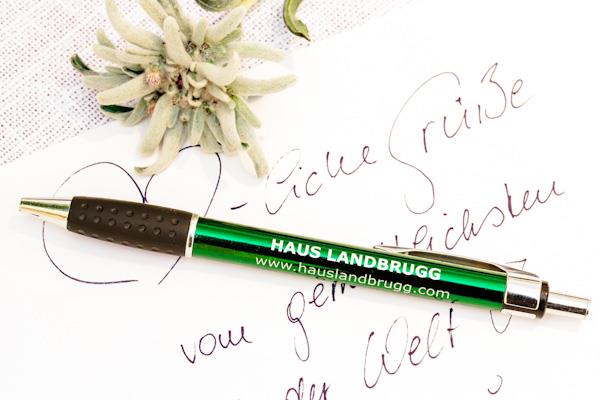 -liche Grüße
vom
der Welt
HAUS LANDBRUGG
www.hauslandbrugg.com